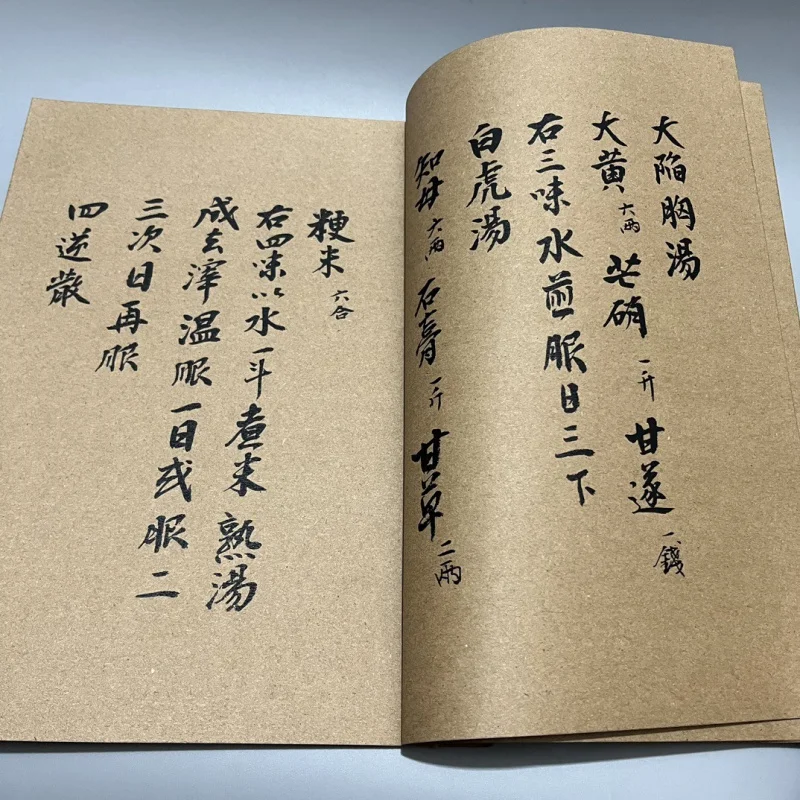 大陷胸湯
大黄六两 芒硝一升 甘遂一錢
右三味水煎服日三下
白虎湯
知母六两 石膏一斤 甘草二兩
粳米六合
右四味以水一斗煮米熟湯
成去滓温服一日或服二
三次日再服
四逆散